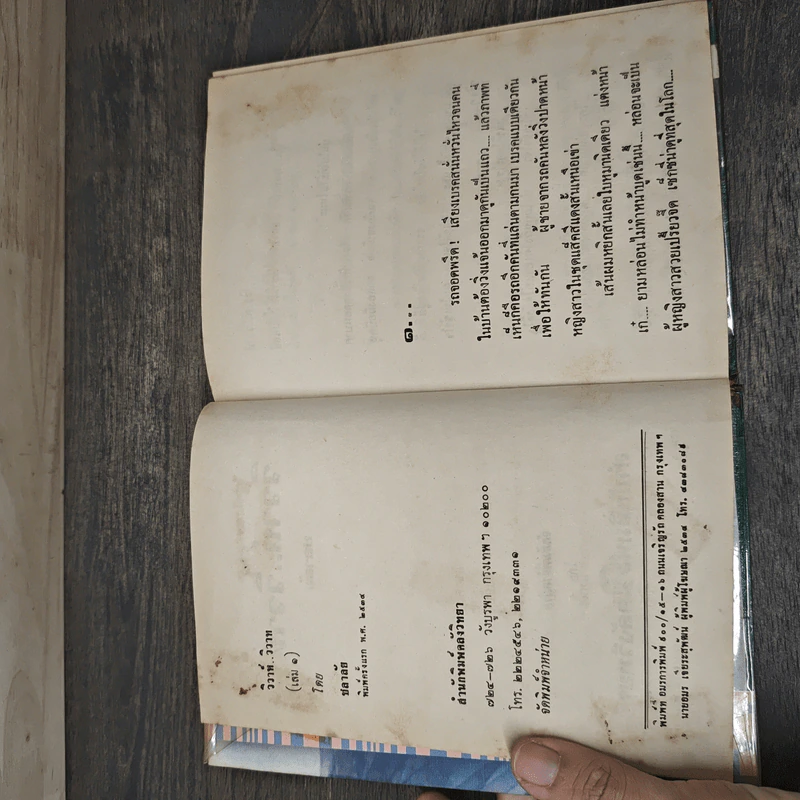 วิวาห์..วิวาท
(เล่ม ๑)
โดย
ชลาลัย
พิมพ์ครั้งแรก พ.ศ. ๒๕๓๔
สำนักพิมพ์คลังวิทยา
๗๒๕-๗๒๖ วังบูรพา กรุงเทพฯ ๑๐๒๐๐
โทร. ๒๒๒๔๕๔๖, ๒๒๑๔๓๓๑
จัดพิมพ์จำหน่าย
พิมพ์ที่ อมรการพิมพ์ ๕๐๐/๑๕-๑๖ ถนนเจริญรัถ คลองสาน กรุงเทพฯ
นายอมร ผู้พิมพ์ผู้โฆษณา ๒๕๓๔ โทร.
๑...
รถจอดพรืด! เสียงเบรคสนั่นหวั่นไหวจนคน
ในบ้านต้องวิ่งแจ้นออกมาดูกันเป็นแถว.... แล้วภาพที่
เห็นก็คือรถอีกคันที่แล่นตามกันมา เบรคแบบเดียวกัน
เพื่อให้ทันกัน ผู้ชายจากรถคันหลังวิ่งปาดหน้า
หญิงสาวในชุดแส็คสีแดงสั้นเหนือเข่า
เส้นผมหยิกสั้นเลยใบหูมานิดเดียว แต่งหน้า
เก๋.... ยามหล่อนไม่ทำหน้าบูดเช่นนี้.... หล่อนจะเป็น
ผู้หญิงสาวสวยเปรี้ยวจี๊ด เซ็กซี่น่าดูที่สุดในโลก....